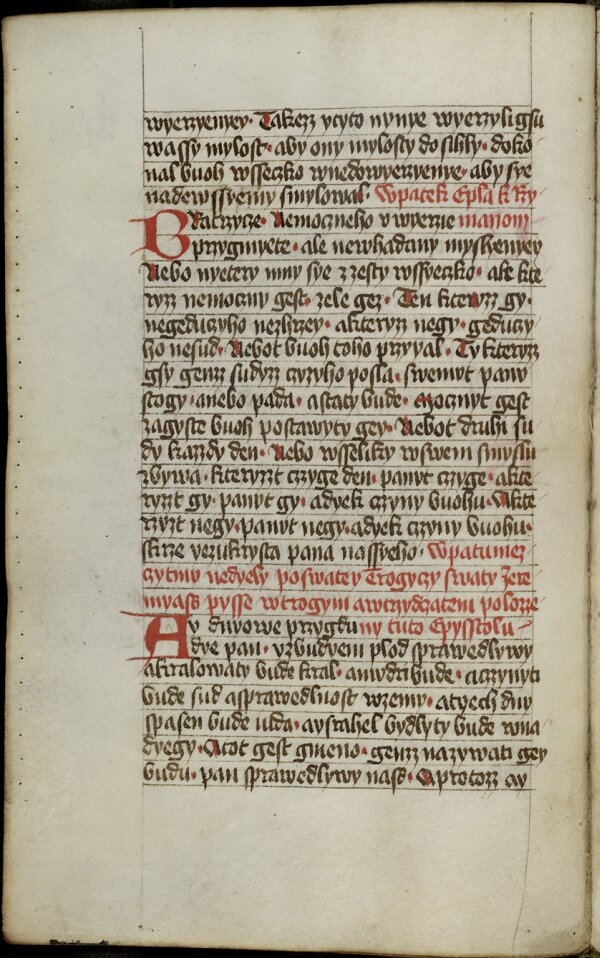 wyerzyemey· Takezz ycyto nynye wyerzyli gsu
wassy mylost· aby ony mylosty dosihly· doko
nal buoh wsseczko wnedowyerzyenye· aby sye
nadewssyemy smylowal· Wpatek Epla k Rzy
Bratrzycze· Nemoczneho v wyerzie manom
przygmyete· ale newhadany myslenyey
Nebo nyetery mny sye zgesty wssyeczko· ale kte
ryzz nemoczny gest· zele gez· Ten kteryzz gy·
negeduczyho nezhrzey· akteryzz negy· geduczy
ho nesud· Nebot buoh toho przyyal· Ty kteryzz
gsy genz sudyzz czyzyho posla· swemyt panu
stogy· anebo pada· astaty bude· Mocznyt gest
zagyste buoh postawyty gey· Nebot druhi su
dy kazzdy den· Nebo wsseliky wswem smyslu
zbywa· kteryzzt czyge den· panyt czyge· akte
ryzzt gy· panyt gy· adyek czyny buohu· Akte
ryzzt negy· panyt negy· adyek czyny buohu·
skrze yezukrysta pana nassyeho· Wpatumez
czytmu nedyely poswatey Trogyczy swaty Jere
myass pysse wtrogym awtrzydczatem polozze
Ay dnyowe przygduny tuto Epysstolu
Adye pan· yzbudyem plod sprawedlywy
akralowaty bude kral· amudri bude· aczynyti
bude sud asprawedlnost wzemy· atyech dny
spasen bude iuda· ayzrahel bydlyty bude wna
dyegy· Atot gest gmeno· genzz nazywati gey
budu· pan sprawedlywy nass· Aprotozz ay